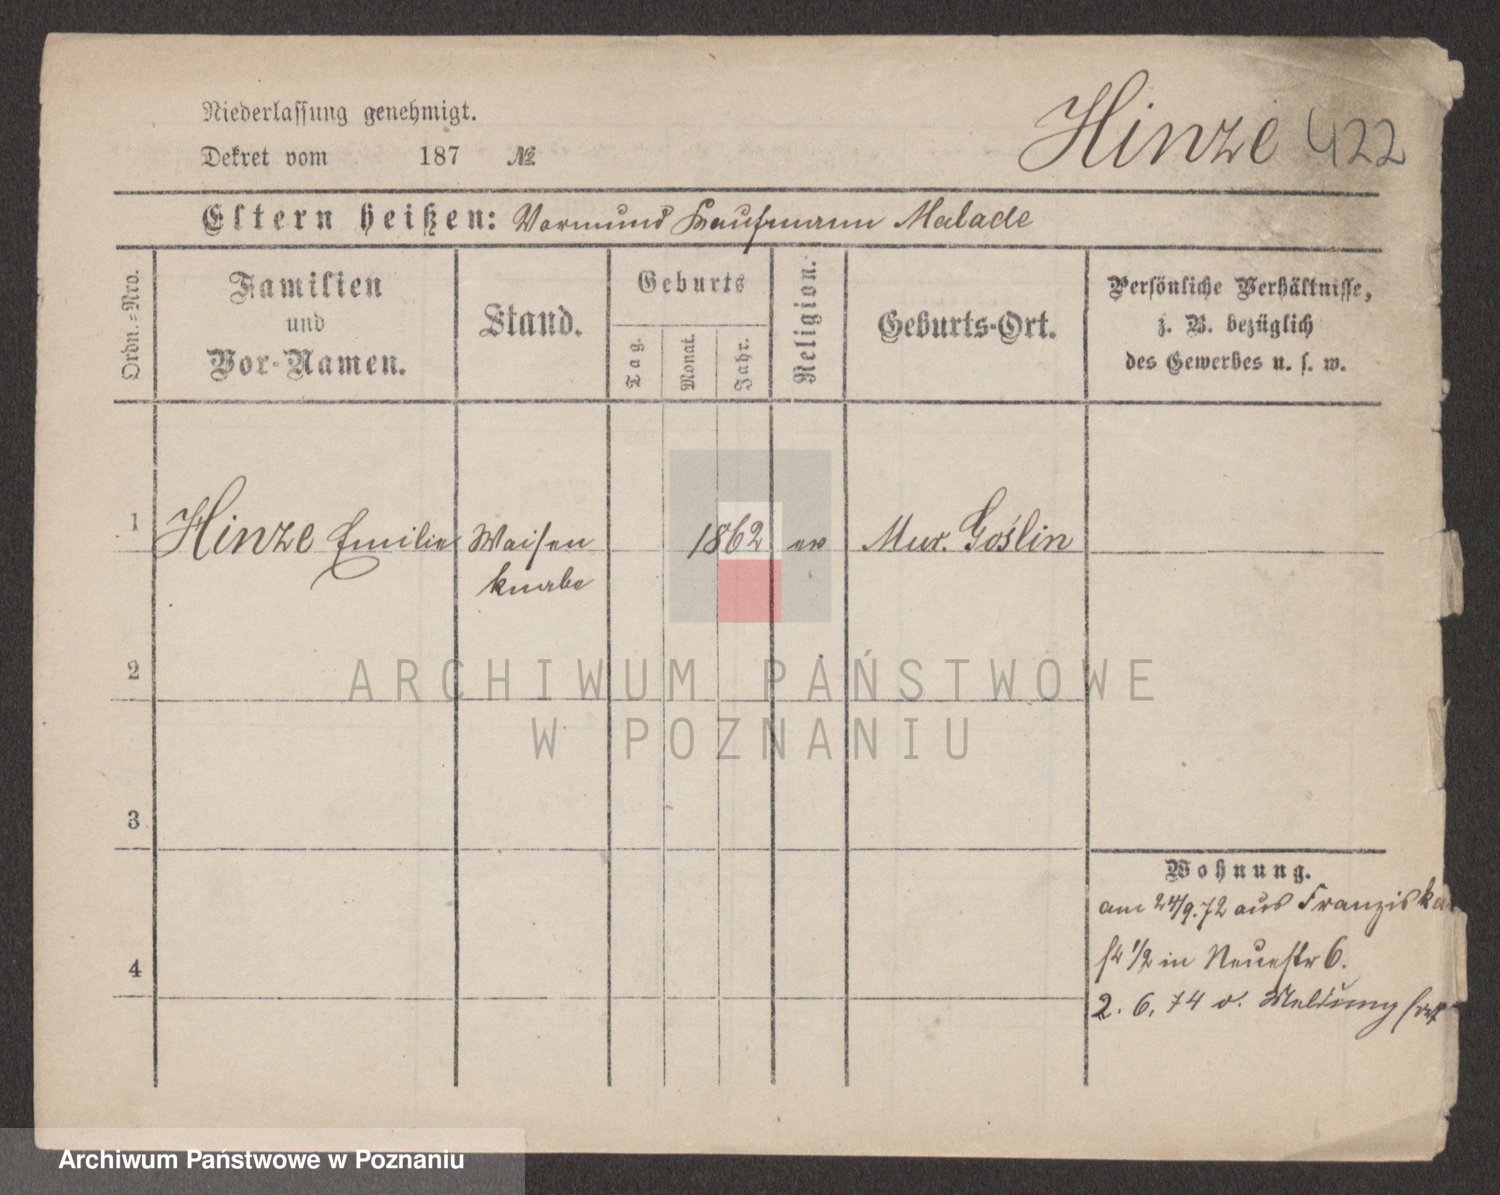 Niederlassung genehmigt.
Dekret vom 187 №
Hinze 422
Eltern heißen: Vormund Kaufmann Malade
Ordn.-Nro.
Familien
und
Vor-Namen.
Stand.
Geburts
Tag.
Monat.
Jahr.
Religion.
Geburts-Ort.
Persönliche Verhältnisse,
z. B. bezüglich
des Gewerbes u. s. w.
1 Hinze Emilie Waisen 1862 ev Mur. Goślin
knabe
2
ARCHIWUM PAŃSTWOWE
W POZNANIU
3
Wohnung.
am 24/9.72 aus Franziska
4
1/2 in Neuestr 6.
2. 6. 74 o. Meldung fort
Archiwum Państwowe w Poznaniu